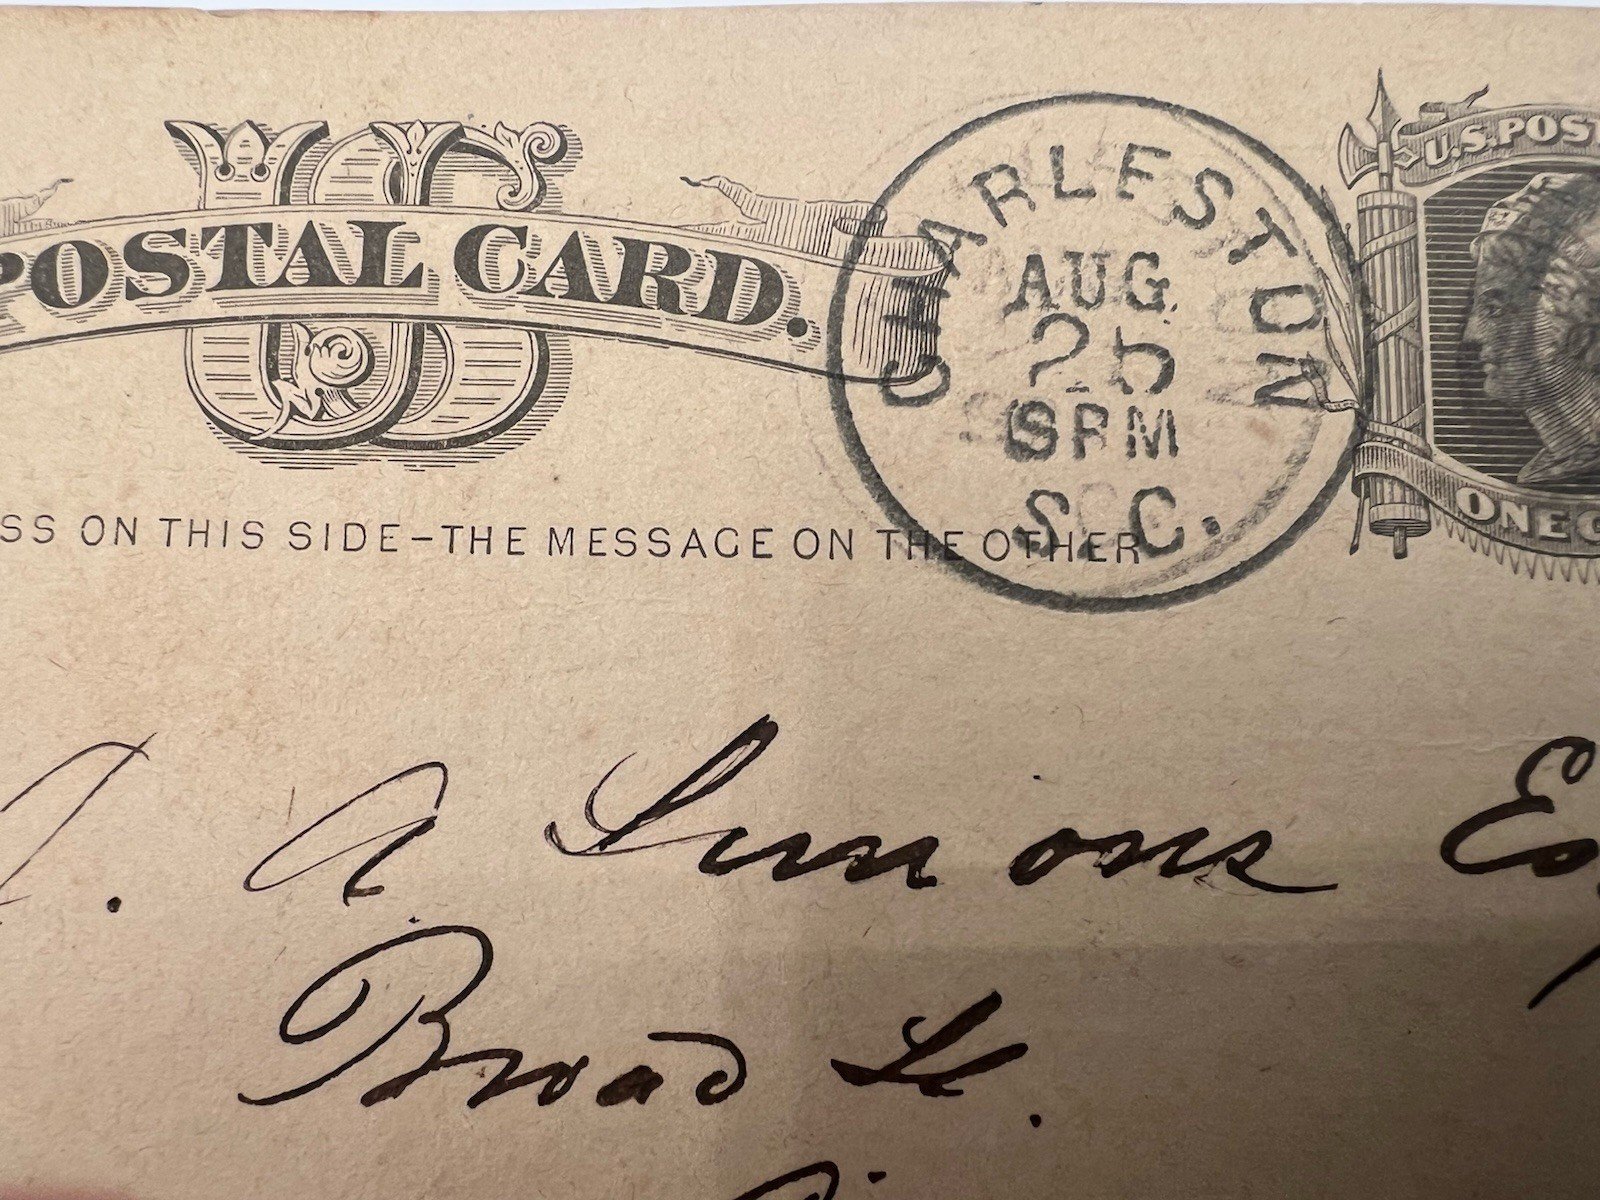 US
POSTAL CARD.
CHARLESTON
AUG
25
8PM
S.C.
U.S. POST
ONE C
SS ON THIS SIDE-THE MESSAGE ON THE OTHER
. A Simons Esq
Broad St.